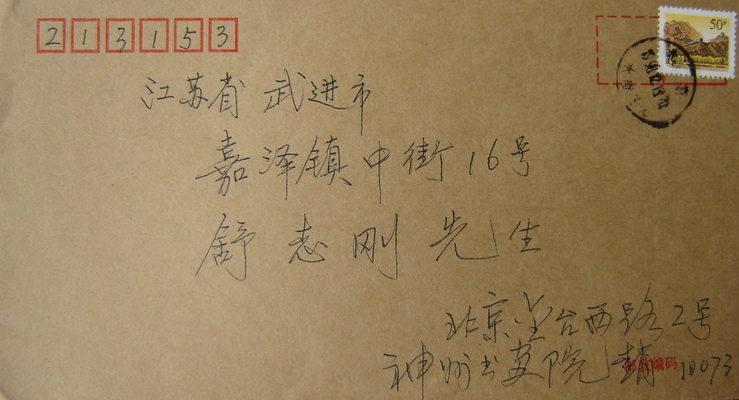 213153
50分
江苏省 武进市
嘉泽镇中街16号
舒志刚先生
北京金台西路2号
神州书画院 10073
邮政编码